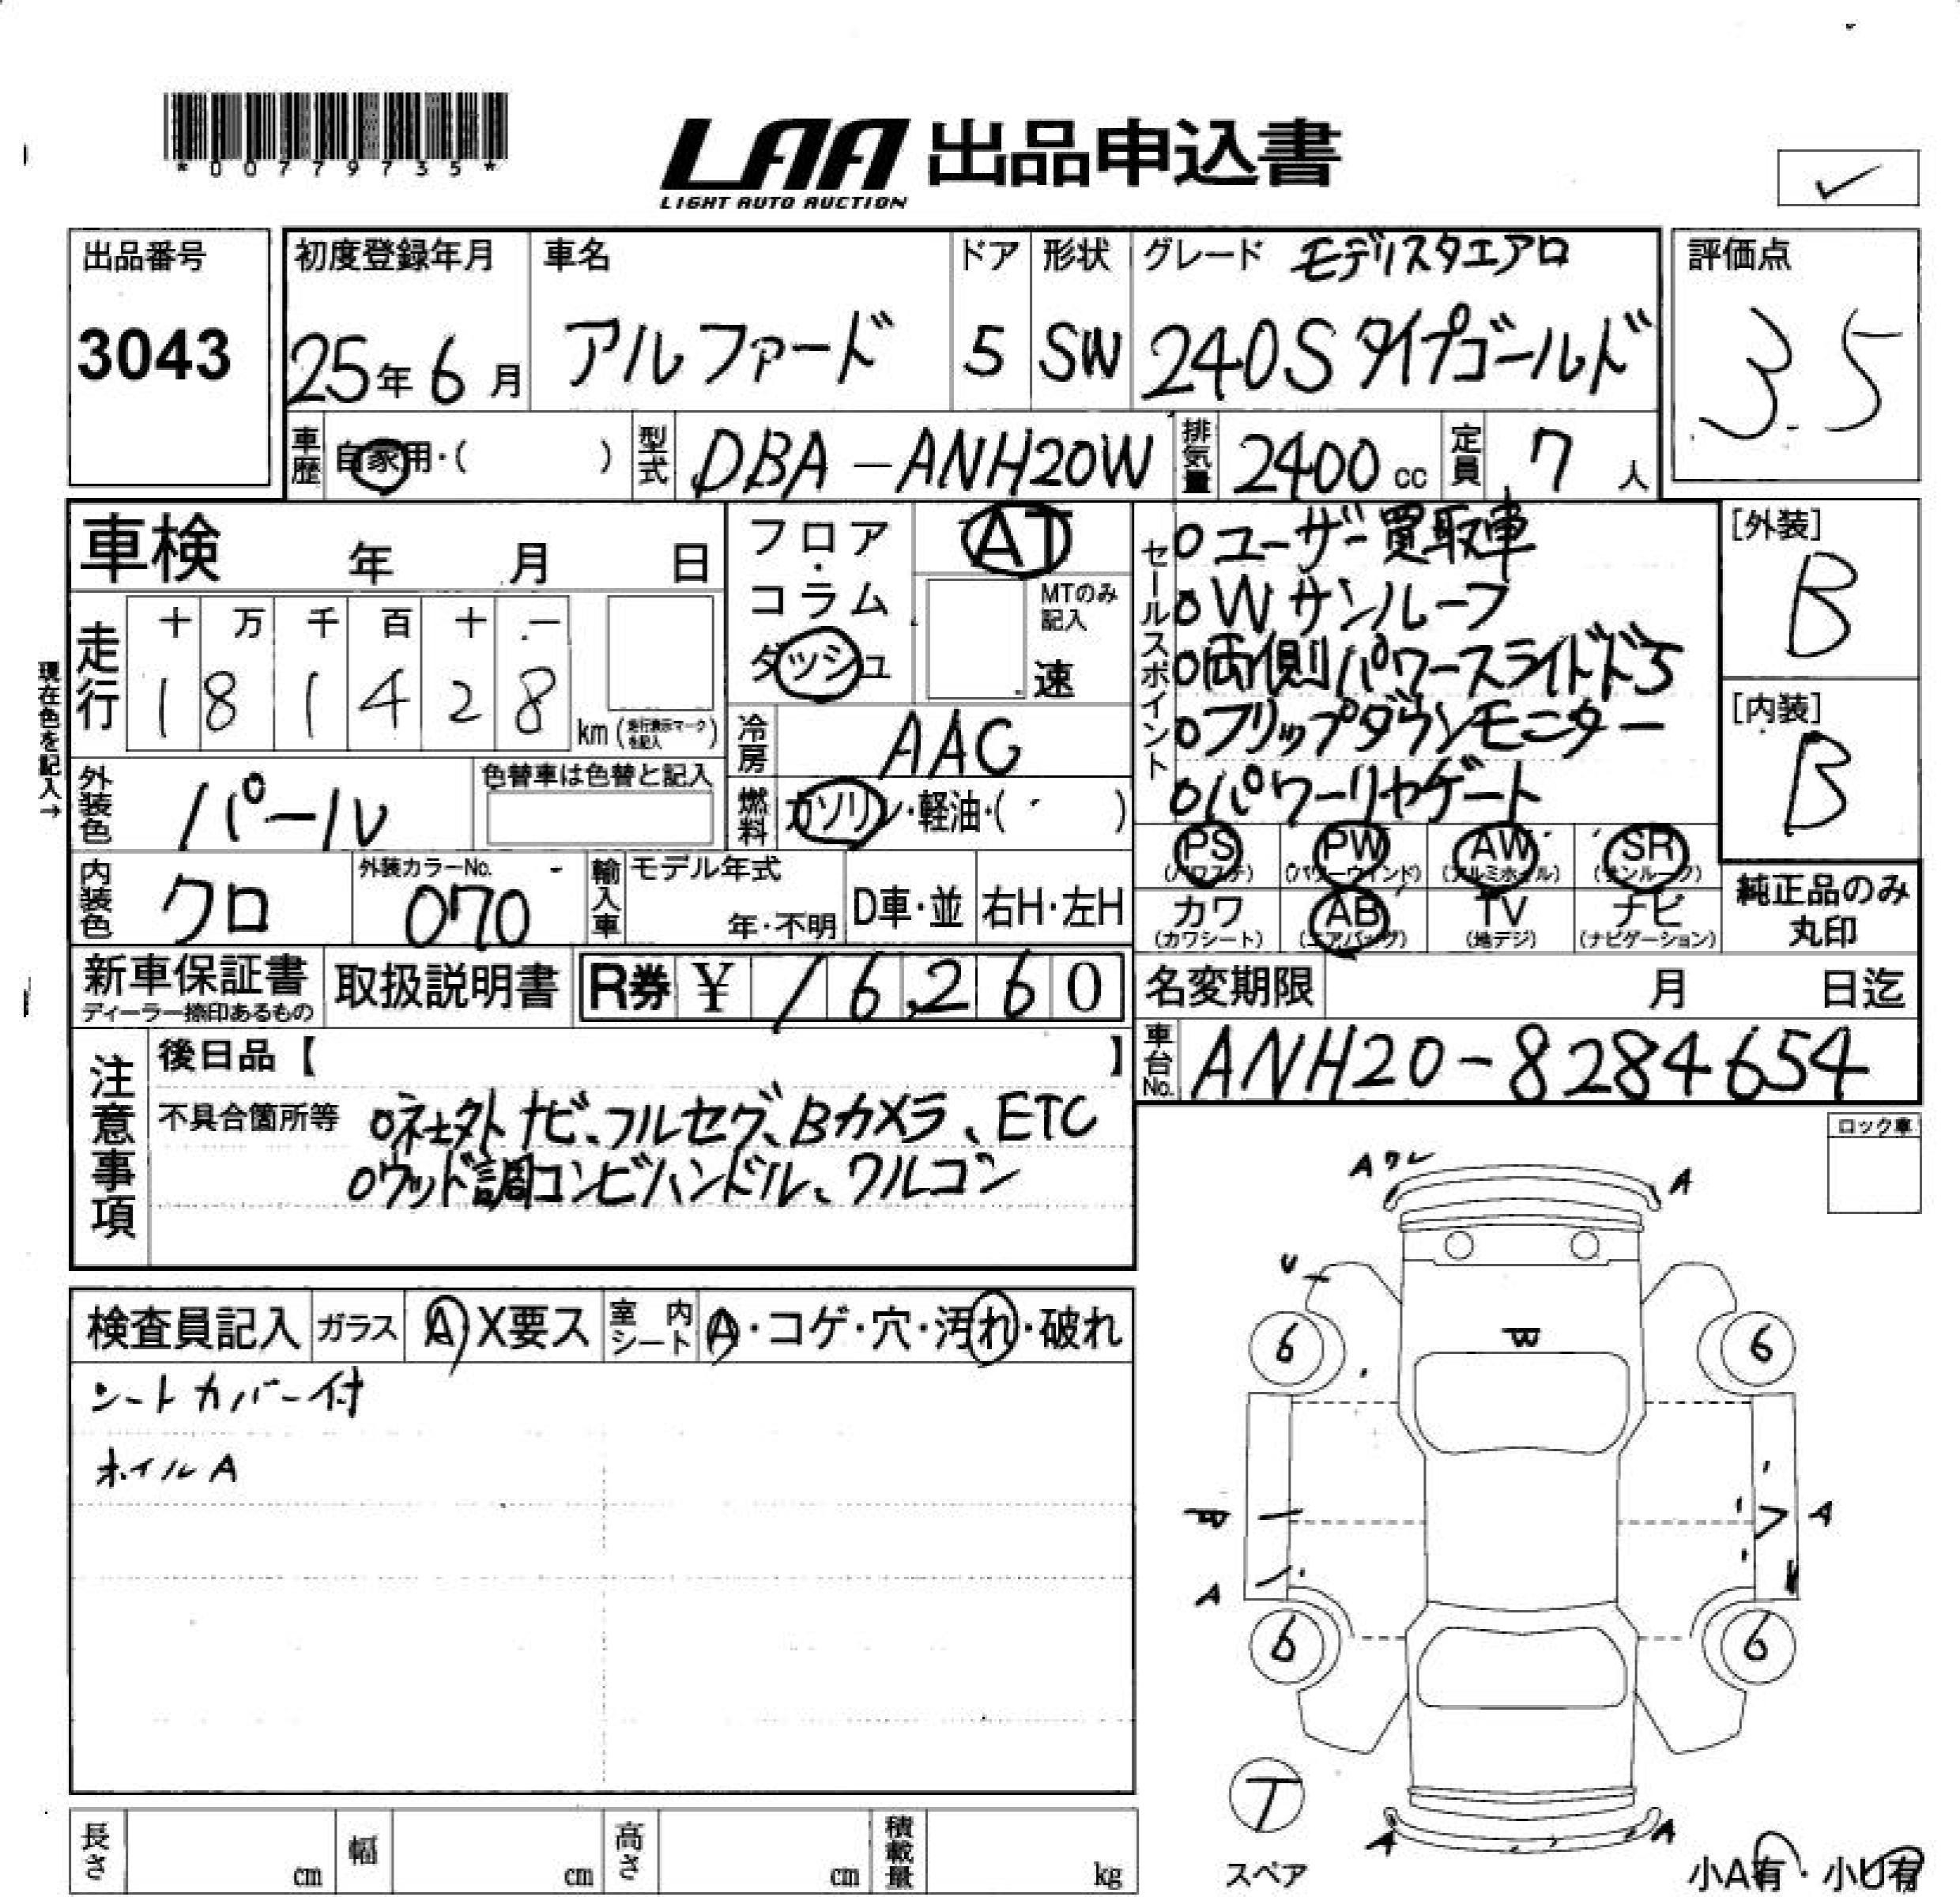 *00779735*
LAA 出品申込書
LIGHT AUTO AUCTION
出品番号
3043
初度登録年月
25年6月
車名
アルファード
ドア
5
形状
SW
グレード モデリスタエアロ
240Sタイプゴールド
評価点
3.5
車歴
自家用・( )
型式
DBA-ANH20W
排気量
2400cc
定員
7人
車検 年 月 日
フロア・コラム
ダッシュ
AT
MTのみ記入
速
セールスポイント
○ユーザー買取車
○Wサンルーフ
○両側パワースライドドア
○フリップダウンモニター
○パワーリヤゲート
[外装]
B
[内装]
B
現在色を記入→
走行
十 万 千 百 十 一
1 8 1 4 2 8
km(走行表示マークを記入)
冷房
AAC
燃料
ガソリン・軽油・( )
外装色
パール
色替車は色替と記入
内装色
クロ
外装カラーNo.
070
輸入車
モデル年式
年・不明
D車・並
右H・左H
PS
(パワステ)
PW
(パワーウインド)
AW
(アルミホイル)
SR
(サンルーフ)
カワ
(カワシート)
AB
(エアバッグ)
TV
(地デジ)
ナビ
(ナビゲーション)
純正品のみ
丸印
新車保証書
ディーラー捺印あるもの
取扱説明書
R券 ¥ 16,260
名変期限 月 日迄
車台No.
ANH20-8284654
注意事項
後日品【 】
不具合箇所等
○社外ナビ、フルセグ、Bカメラ、ETC
○ウッド調コンビハンドル、ワルコン
ロック車
検査員記入
ガラス
A X要ス
室内シート
A・コゲ・穴・汚れ・破れ
シートカバー付
ホイルA
Aワレ
A
U
W
6
6
W
A
A
6
6
T
スペア
A
A
小A有・小U有
長さ cm
幅 cm
高さ cm
積載量 kg